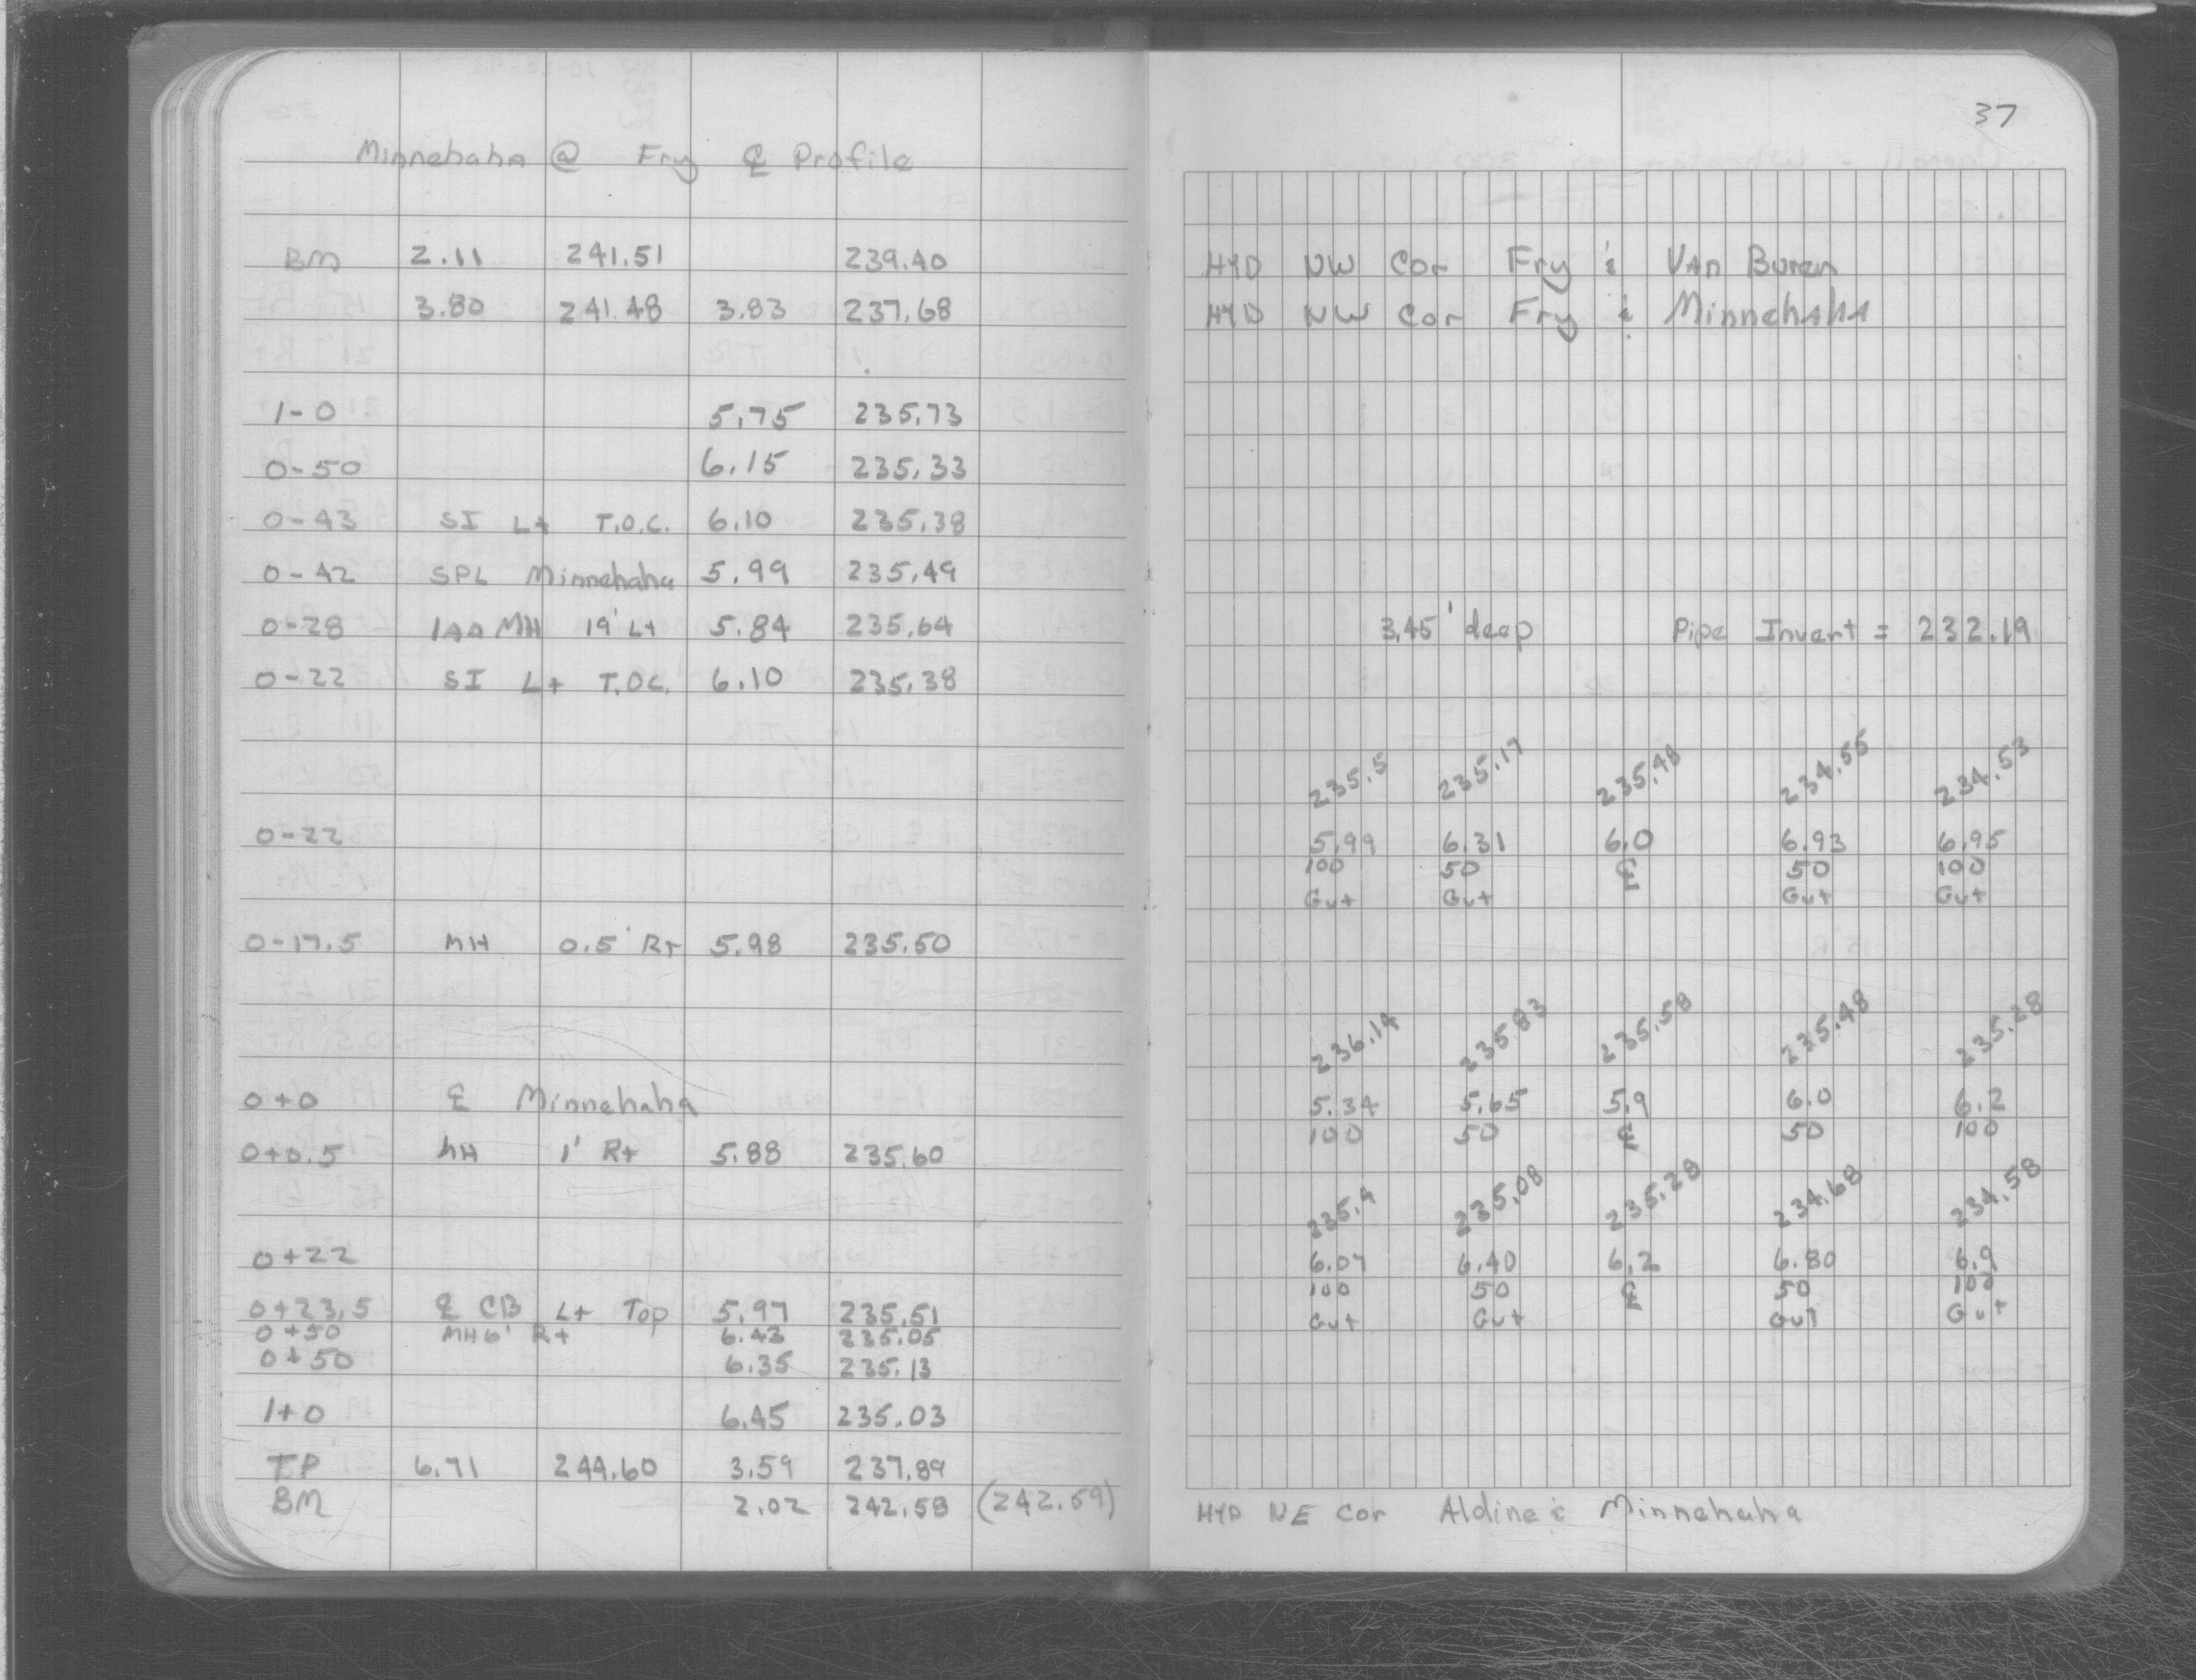 Minnehaha @ Fry ℄ Profile
BM 2.11 241.51 239.40
3.80 241.48 3.83 237.68
1-0 5.75 235.73
0-50 6.15 235.33
0-43 SI Lt T.O.C. 6.10 235.38
0-42 SPL Minnehaha 5.99 235.49
0-28 MH 19' Lt 5.84 235.64
0-22 SI Lt T.O.C. 6.10 235.38
0-22
0-17.5 MH 0.5' Rt 5.98 235.50
0+0 ℄ Minnehaha
0+0.5 MH 1' Rt 5.88 235.60
0+22
0+23.5 ℄ CB Lt Top 5.97 235.51
0+50 MH 6' Rt 6.43 235.05
0+50 6.35 235.13
1+0 6.45 235.03
TP 6.71 244.60 3.59 237.89
BM 2.02 242.58 (242.59)
37
HYD NW Cor Fry & Van Buren
HYD NW Cor Fry & Minnehaha
3.45' deep Pipe Invert = 232.19
235.5 235.17 235.48 234.55 234.53
5.99 6.31 6.0 6.93 6.95
100 50 ℄ 50 100
Gut Gut Gut Gut
236.14 235.83 235.58 235.48 235.28
5.34 5.65 5.9 6.0 6.2
100 50 ℄ 50 100
235.4 235.08 235.28 234.68 234.58
6.07 6.40 6.2 6.80 6.9
100 50 ℄ 50 100
Gut Gut Gut Gut
HYD NE Cor Aldine & Minnehaha